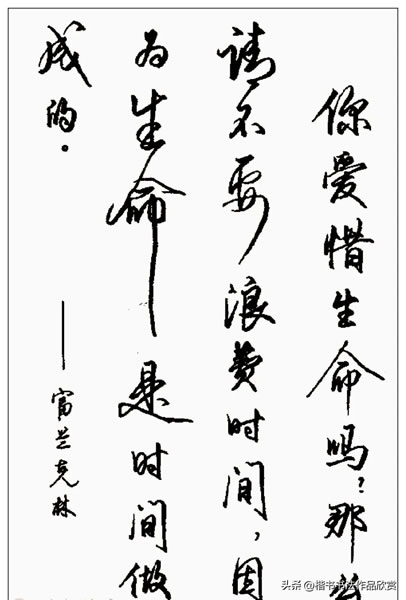 你爱惜生命吗？那么
请不要浪费时间，因
为生命是时间做
成的。
——富兰克林
头条@楷书书法作品欣赏